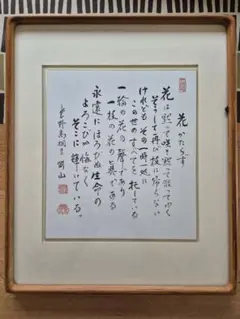 花かたらず
花は黙って咲き黙って散ってゆく
そうして再び枝に帰らない
けれどもその一時一処に
この世のすべてを托している
一輪の花の声であり
一枝の花の真である
永遠にほろびぬ生命の
よろこびが悔なく
そこに輝いている。